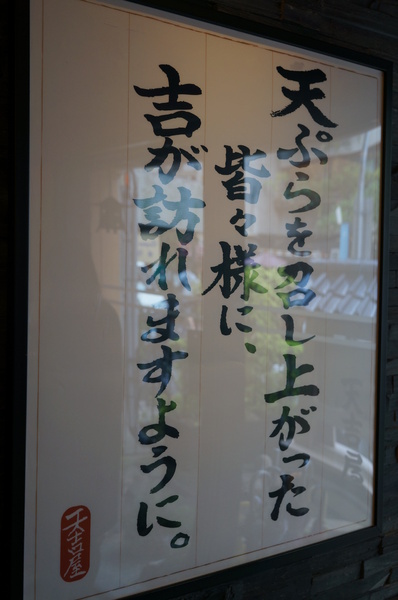 天ぷらを召し上がった
皆々様に、
吉が訪れますように。
天吉屋